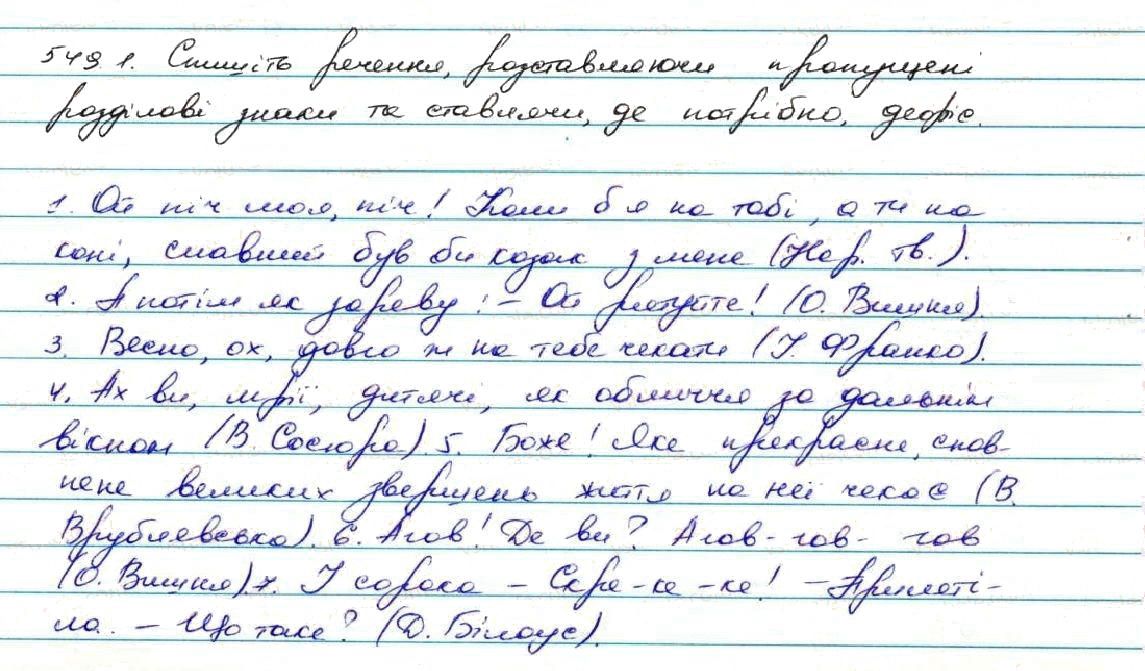 549. 1. Спишіть речення, розставляючи пропущені
розділові знаки та ставлячи, де потрібно, дефіс.
1. Ой піч моя, піч! Коли б я на тобі, а ти на
коні, славний був би козак з мене (Нар. тв.).
2. А потім як зареву: – Ой рятуйте! (О. Вишня).
3. Весно, ох, довго ж на тебе чекати (І. Франко).
4. Ах ви, мрії, дитячі, як обличчя за дальнім
вікном (В. Сосюра). 5. Боже! Яке прекрасне, спов-
нене великих звершень життя на неї чекає (В.
Врублевська). 6. Агов! Де ви? Агов-гов- гов
(О. Вишня) 7. І сорока – Скре-ке-ке! – Прилеті-
ла. – Що таке? (Д. Білоус).